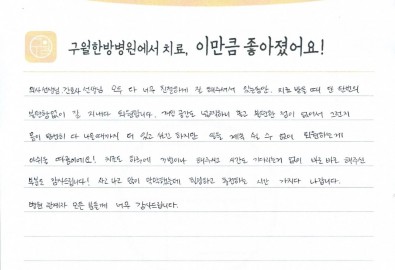 구월한방병원에서 치료, 이만큼 좋아졌어요!
의사선생님 간호사 선생님 모두 다 너무 친절하게 잘 해주셔서 있는동안 치료 받을 때 단 한번의
불편함없이 잘 지내다 퇴원합니다. 개인 공간도 넓직하니 좋고 불편한 점이 없어서
몸이 완전히 다 나을때까지 더 있고 싶긴 하지만 일을 계속 쉴 수 없어 퇴원하는게
아쉬울 따름이에요! 치료도 하루에 2번이나 해주시고 시간도 기다리는거 없이 바로 바로 해주신
부분도 감사드립니다! 사고 나고 많이 막막했는데 치료하고 휴식하는 시간 가지다 나갑니다.
병원 관계자 모든 분들께 너무 감사드립니다.